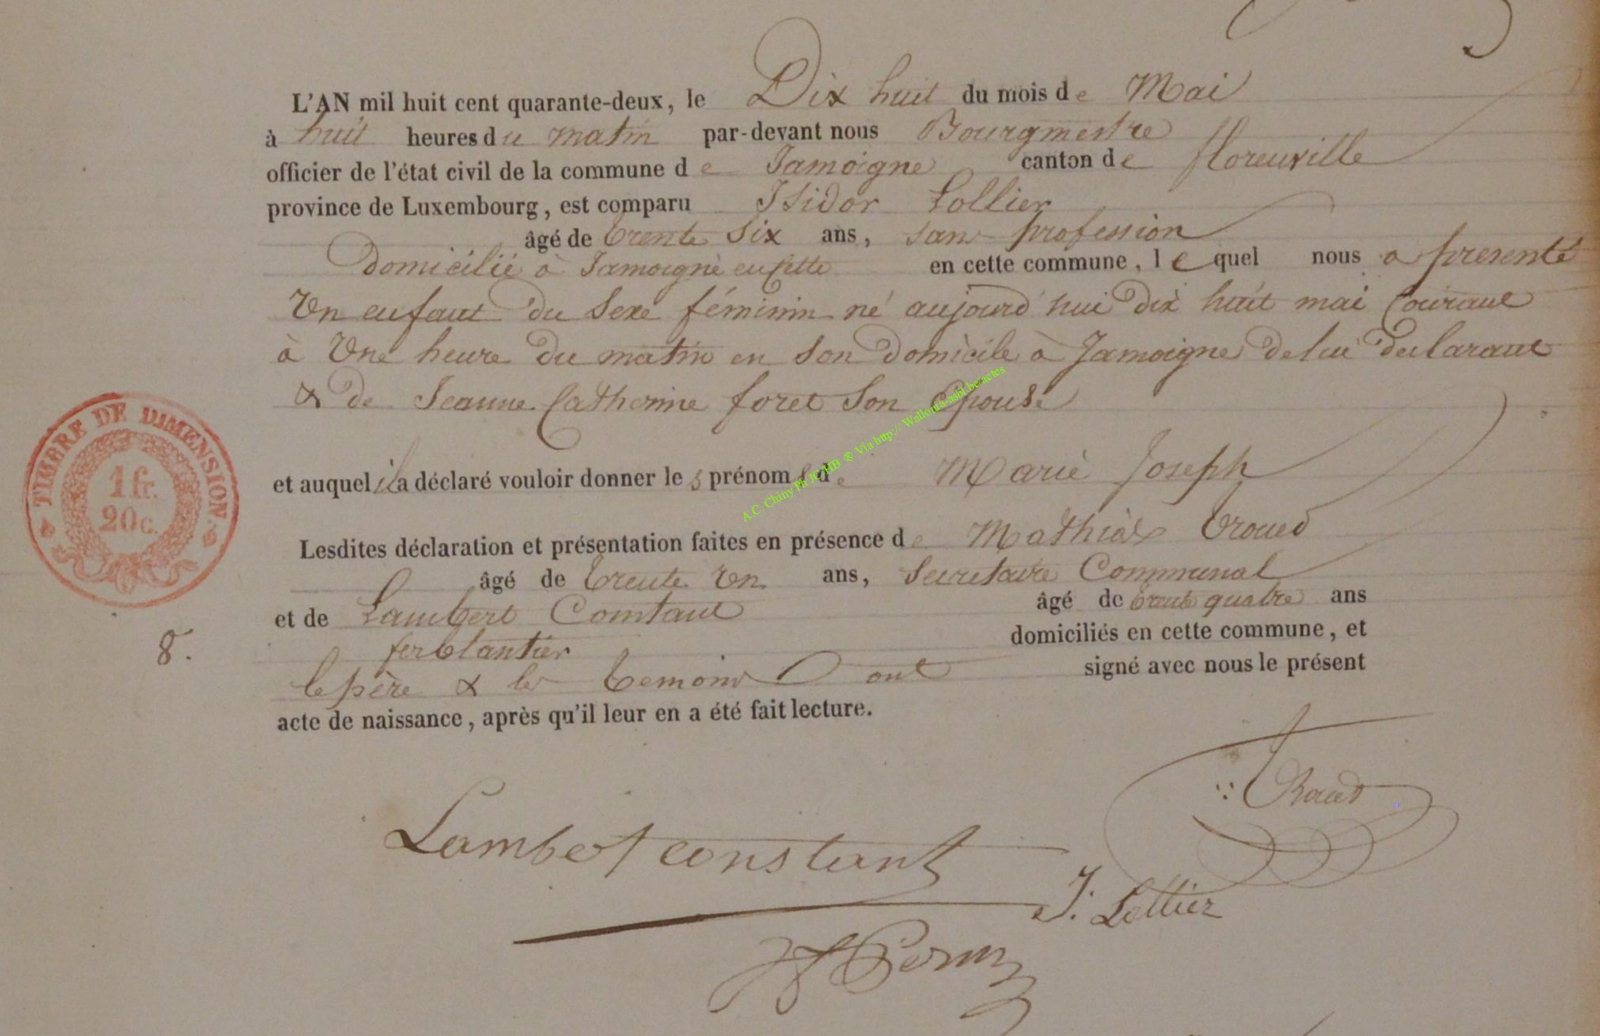 L'AN mil huit cent quarante-deux, le Dix huit du mois de Mai
à huit heures du matin par-devant nous Bourgmestre
officier de l'état civil de la commune de Jamoigne canton de florenville
province de Luxembourg, est comparu Isidor Lollier
âgé de trente Six ans, sans profession
Domicilié à Jamoigne en cette commune, lequel nous a presenté
Un enfant du Sexe féminin né aujourd'hui dix huit mai Courant
à Une heure du matin en Son Domicile à Jamoigne de lui declarant
& de Jeanne Catherine foret Son Epouse
et auquel il a déclaré vouloir donner les prénoms de Marie Joseph
Lesdites déclaration et présentation faites en présence de Mathias
âgé de trente Un ans, Secretaire Communal
et de Lambert Constant âgé de trente quatre ans
ferblantier domiciliés en cette commune, et
le père & les temoins ont signé avec nous le présent
acte de naissance, après qu'il leur en a été fait lecture.
TIMBRE DE DIMENSION.
1 fr.
20 c.
8.
A.C. Chiny Via http:// Wallonia-asbl.be/actes
Lambert constant
J. Lollier